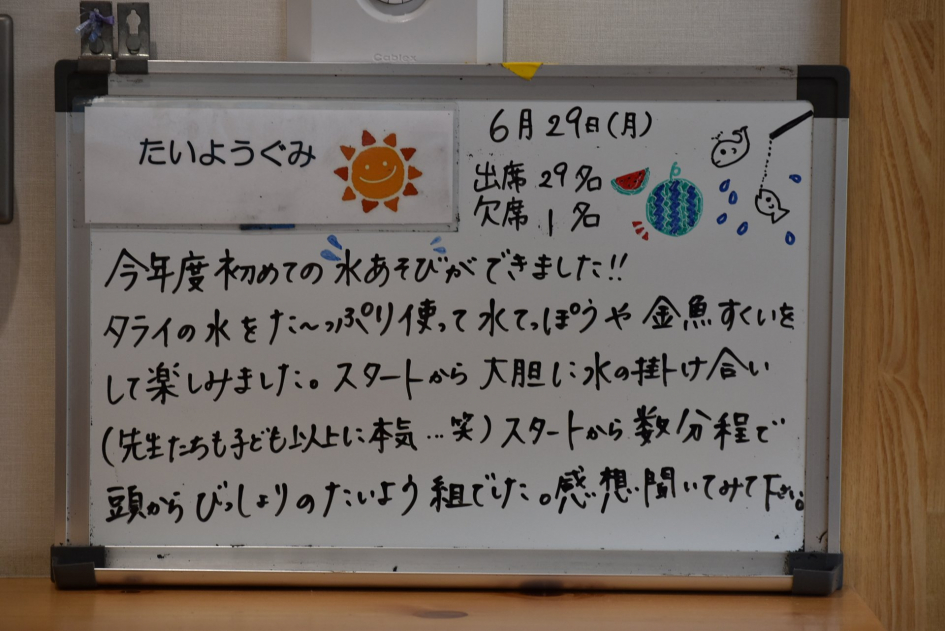 Coblex
たいようぐみ
6月29日(月)
出席 29名
欠席 1名
今年度初めての水あそびができました!!
タライの水をた〜っぷり使って水てっぽうや金魚すくいを
して楽しみました。スタートから大胆に水の掛け合い
(先生たちも子ども以上に本気…笑)スタートから数分程で
頭からびっしょりのたいよう組でした。感想聞いてみて下さい。